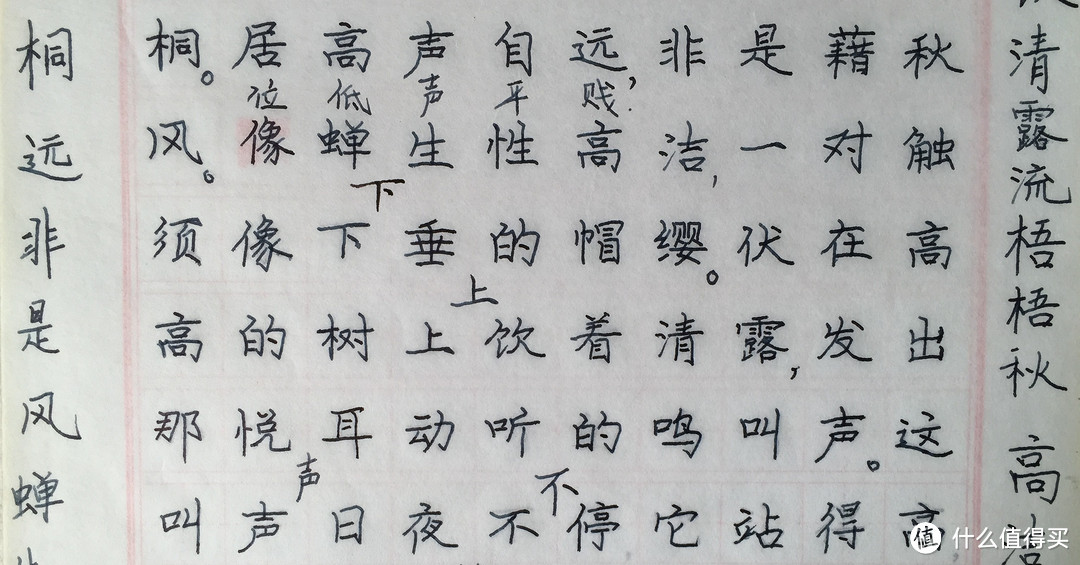 桐。居高声自远,非是藉秋
位低声平贱,
风。像蝉生性高洁,一对触
下
须像下垂的帽缨。伏在高
上
高的树上饮着清露,发出
那悦耳动听的鸣叫声。这
声 不
叫声日夜不停它站得高
桐远非是风蝉
清露流梧梧秋高洁
值 什么值得买